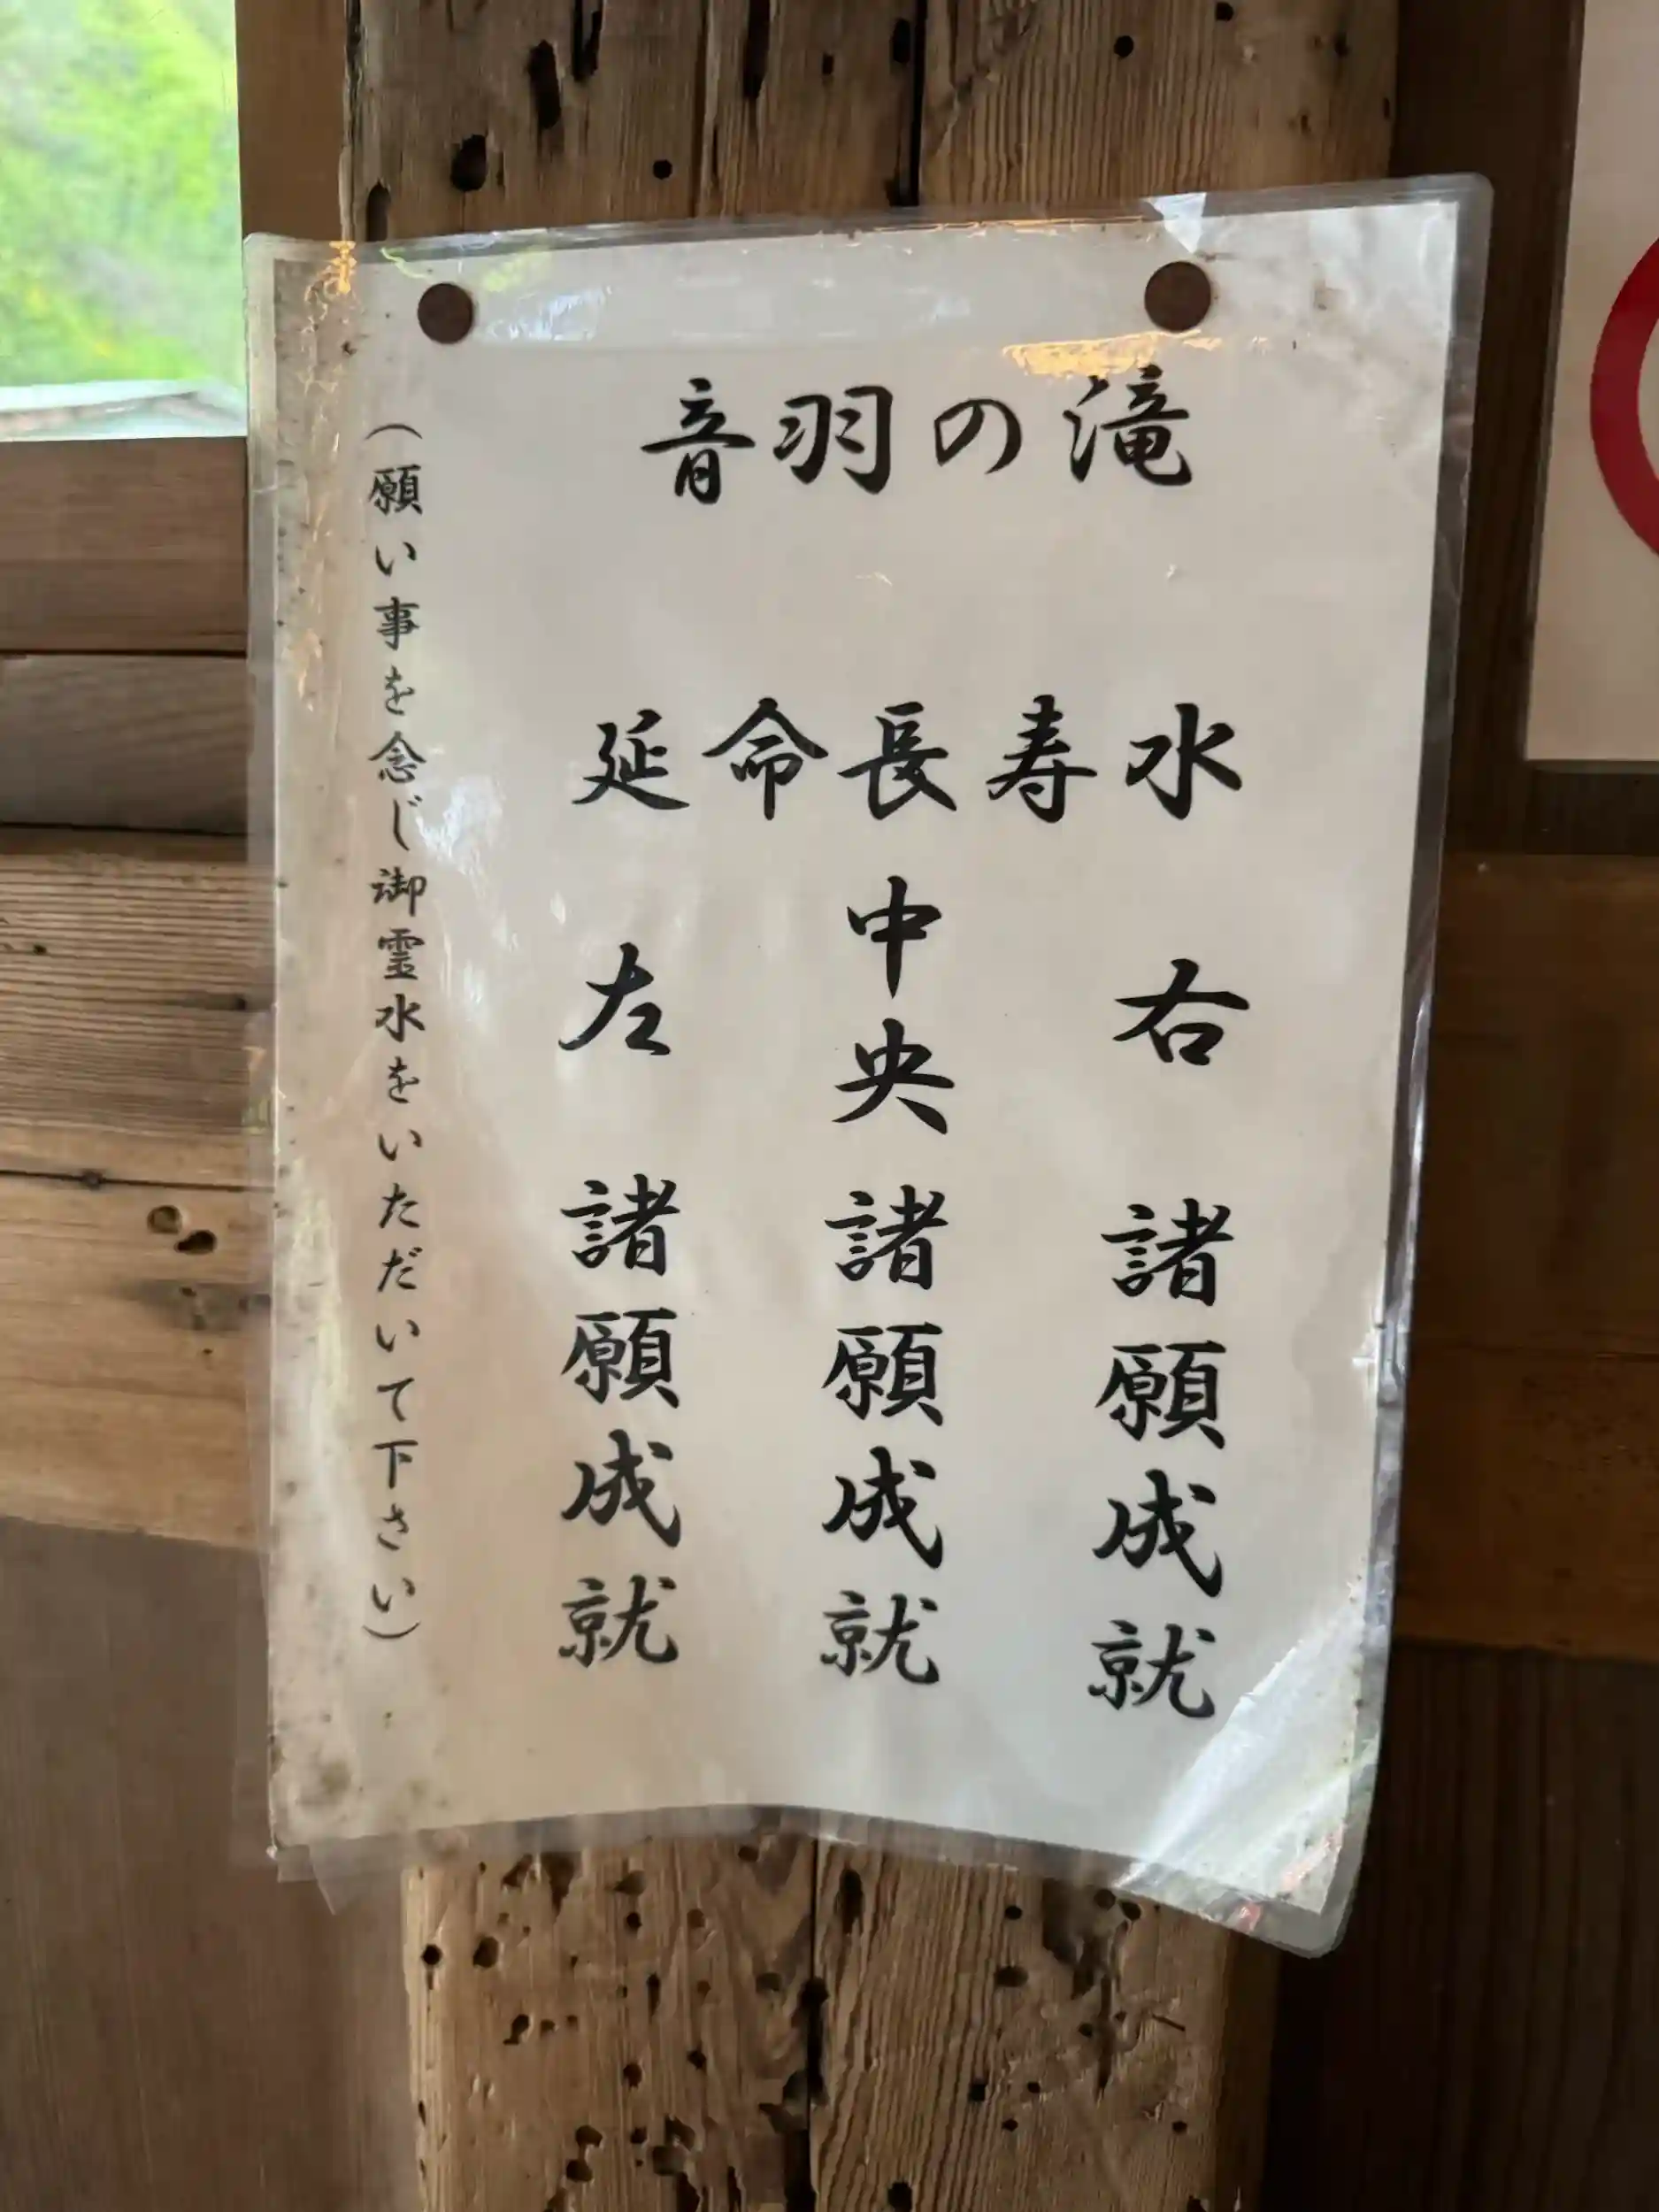 音羽の滝
延命長寿水
右 諸願成就
中央 諸願成就
左 諸願成就
(願い事を念じ御霊水をいただいて下さい)